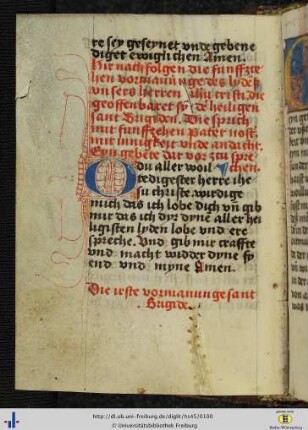 re sey geseynet vnde gebene
diget ewiglichen Amen.
Hir nach folgen die funffzte
hen vormanunge des lydes
vnsers herren Jhu cristi. Die
geoffenbaret sy der heiligen
sant Brigiden. Die sprich
mit funffzehen pater nost
mit innigkeit vnde andacht.
Eyn gebete dar vor zu spre
chen.
O du aller woil
tedigester herre ihe
su christe. wirdige
mich das ich lobe dich vn gib
mir das ich dyr dyne aller hei
ligisten lyden lobe vnd ere
spreche. Vnd gib mir craffte
vnd macht widder dyne fy
end vnd myne Amen.
Die irste vormanunge sant
Brigide.
http://dl.ub.uni-freiburg.de/diglit/hs45/0100
© Universitätsbibliothek Freiburg
Baden-Württemberg